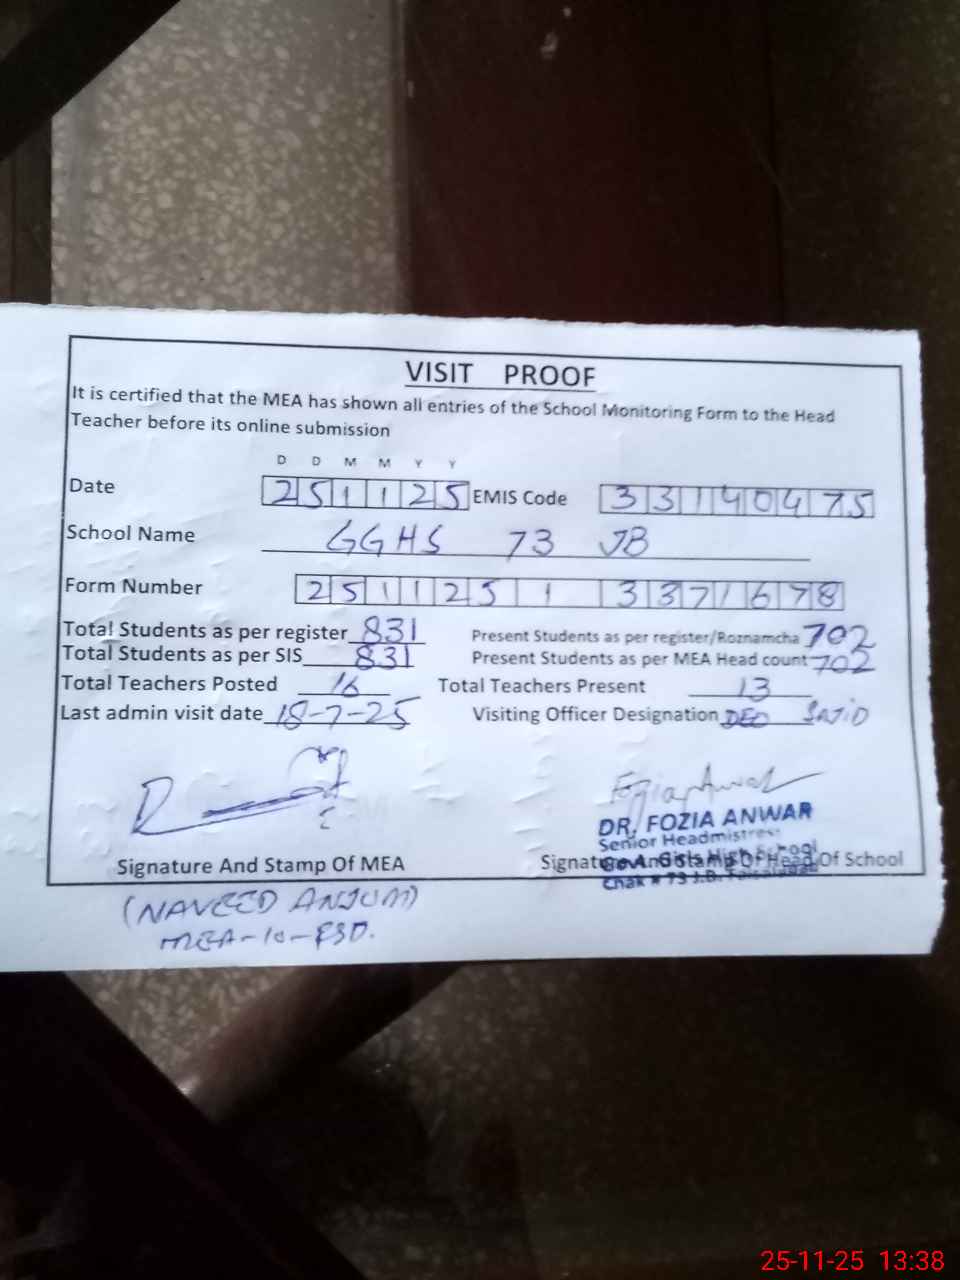 VISIT PROOF
It is certified that the MEA has shown all entries of the School Monitoring Form to the Head
Teacher before its online submission
D D M M Y Y
Date 251125 EMIS Code 33140475
School Name GGHS 73 JB
Form Number 251125 1 3371678
Total Students as per register 831 Present Students as per register/Roznamcha 702
Total Students as per SIS 831 Present Students as per MEA Head count 702
Total Teachers Posted 16 Total Teachers Present 13
Last admin visit date 18-7-25 Visiting Officer Designation DEO SAJID
Fozia Anwar
DR. FOZIA ANWAR
Senior Headmistress
Govt. Girls High School
Chak # 73 J.B. Faisalabad
Signature And Stamp Of MEA Signature And Stamp Of Head Of School
(NAVEED ANJUM)
MEA-10-FSD.
25-11-25 13:38